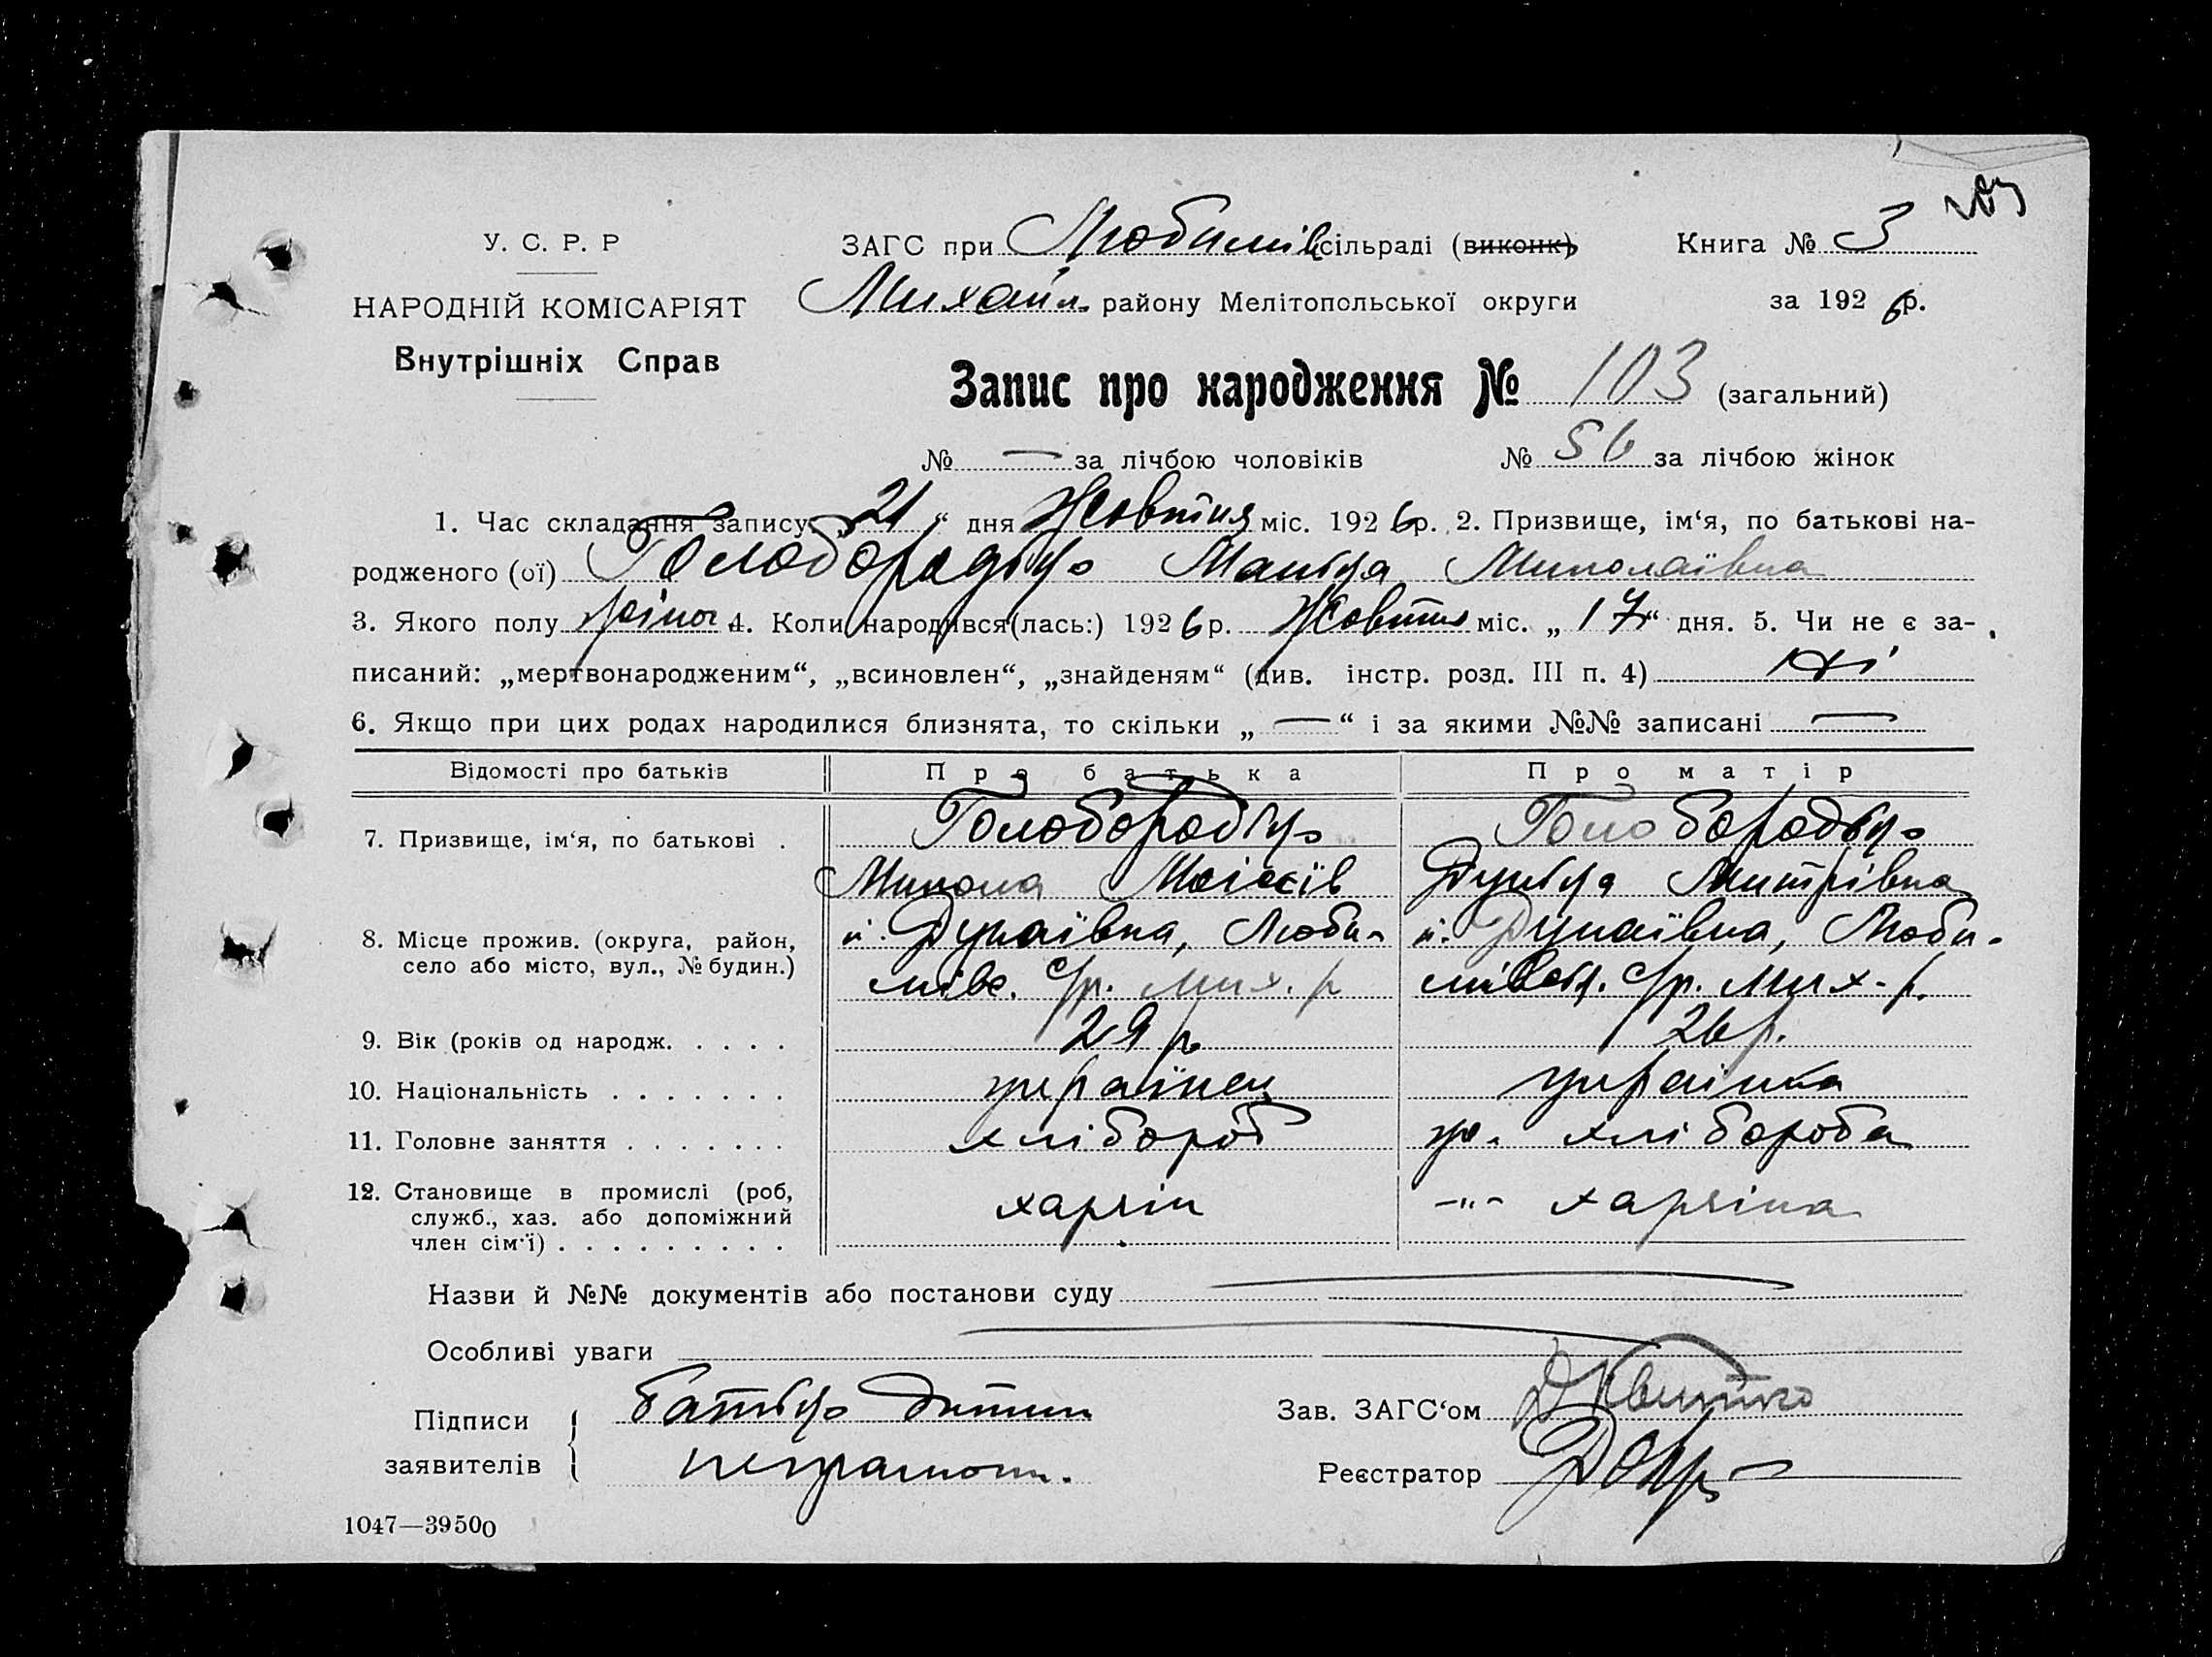 203
У. С. Р. Р
ЗАГС при Любимівсільраді (виконк)
Книга № 3
НАРОДНІЙ КОМІСАРІЯТ
Михайл. району Мелітопольської округи
за 192 6р.
Внутрішніх Справ
Запис про народження № 103 (загальний)
№ — за лічбою чоловіків № 56 за лічбою жінок
1. Час складання запису „ 21 “ дня Жовтня міс. 192 6р. 2. Призвище, ім‘я, по батькові на-
родженого (ої) Голобородько Манька Миколаївна
3. Якого полу жіноч 4. Коли народився(лась:) 192 6 р. Жовтня міс. „ 17 “ дня. 5. Чи не є за-
писаний: „мертвонародженим“, „всиновлен“, „знайденям“ (див. інстр. розд. III п. 4) ні
6. Якщо при цих родах народилися близнята, то скільки „ — “ і за якими №№ записані —
Відомості про батьків Про батька Про матір
7. Призвище, ім‘я, по батькові . Голобородько Голобородько
Микола Мойсеїв Дунька Митрівна
8. Місце прожив. (округа, район, Дунаївка, Люби- Дунаївка, Люби-
село або місто, вул., № будин.) мівс. с/р. Мих. р мівськ. с/р. Мих-р.
9. Вік (років од народж. . . . . 29 р 26 р.
10. Національність . . . . . . . українец українка
11. Головне заняття . . . . . . . хлібороб хлібороба
12. Становище в промислі (роб,
служб., хаз. або допоміжний
член сім‘ї) . . . . . . . . . хазяін -"- хазяіна
Назви й №№ документів або постанови суду
Особливі уваги
Підписи батько дитини
заявителів неграмотн.
Зав. ЗАГС‘ом Д Квитко
Реєстратор
1047—39500